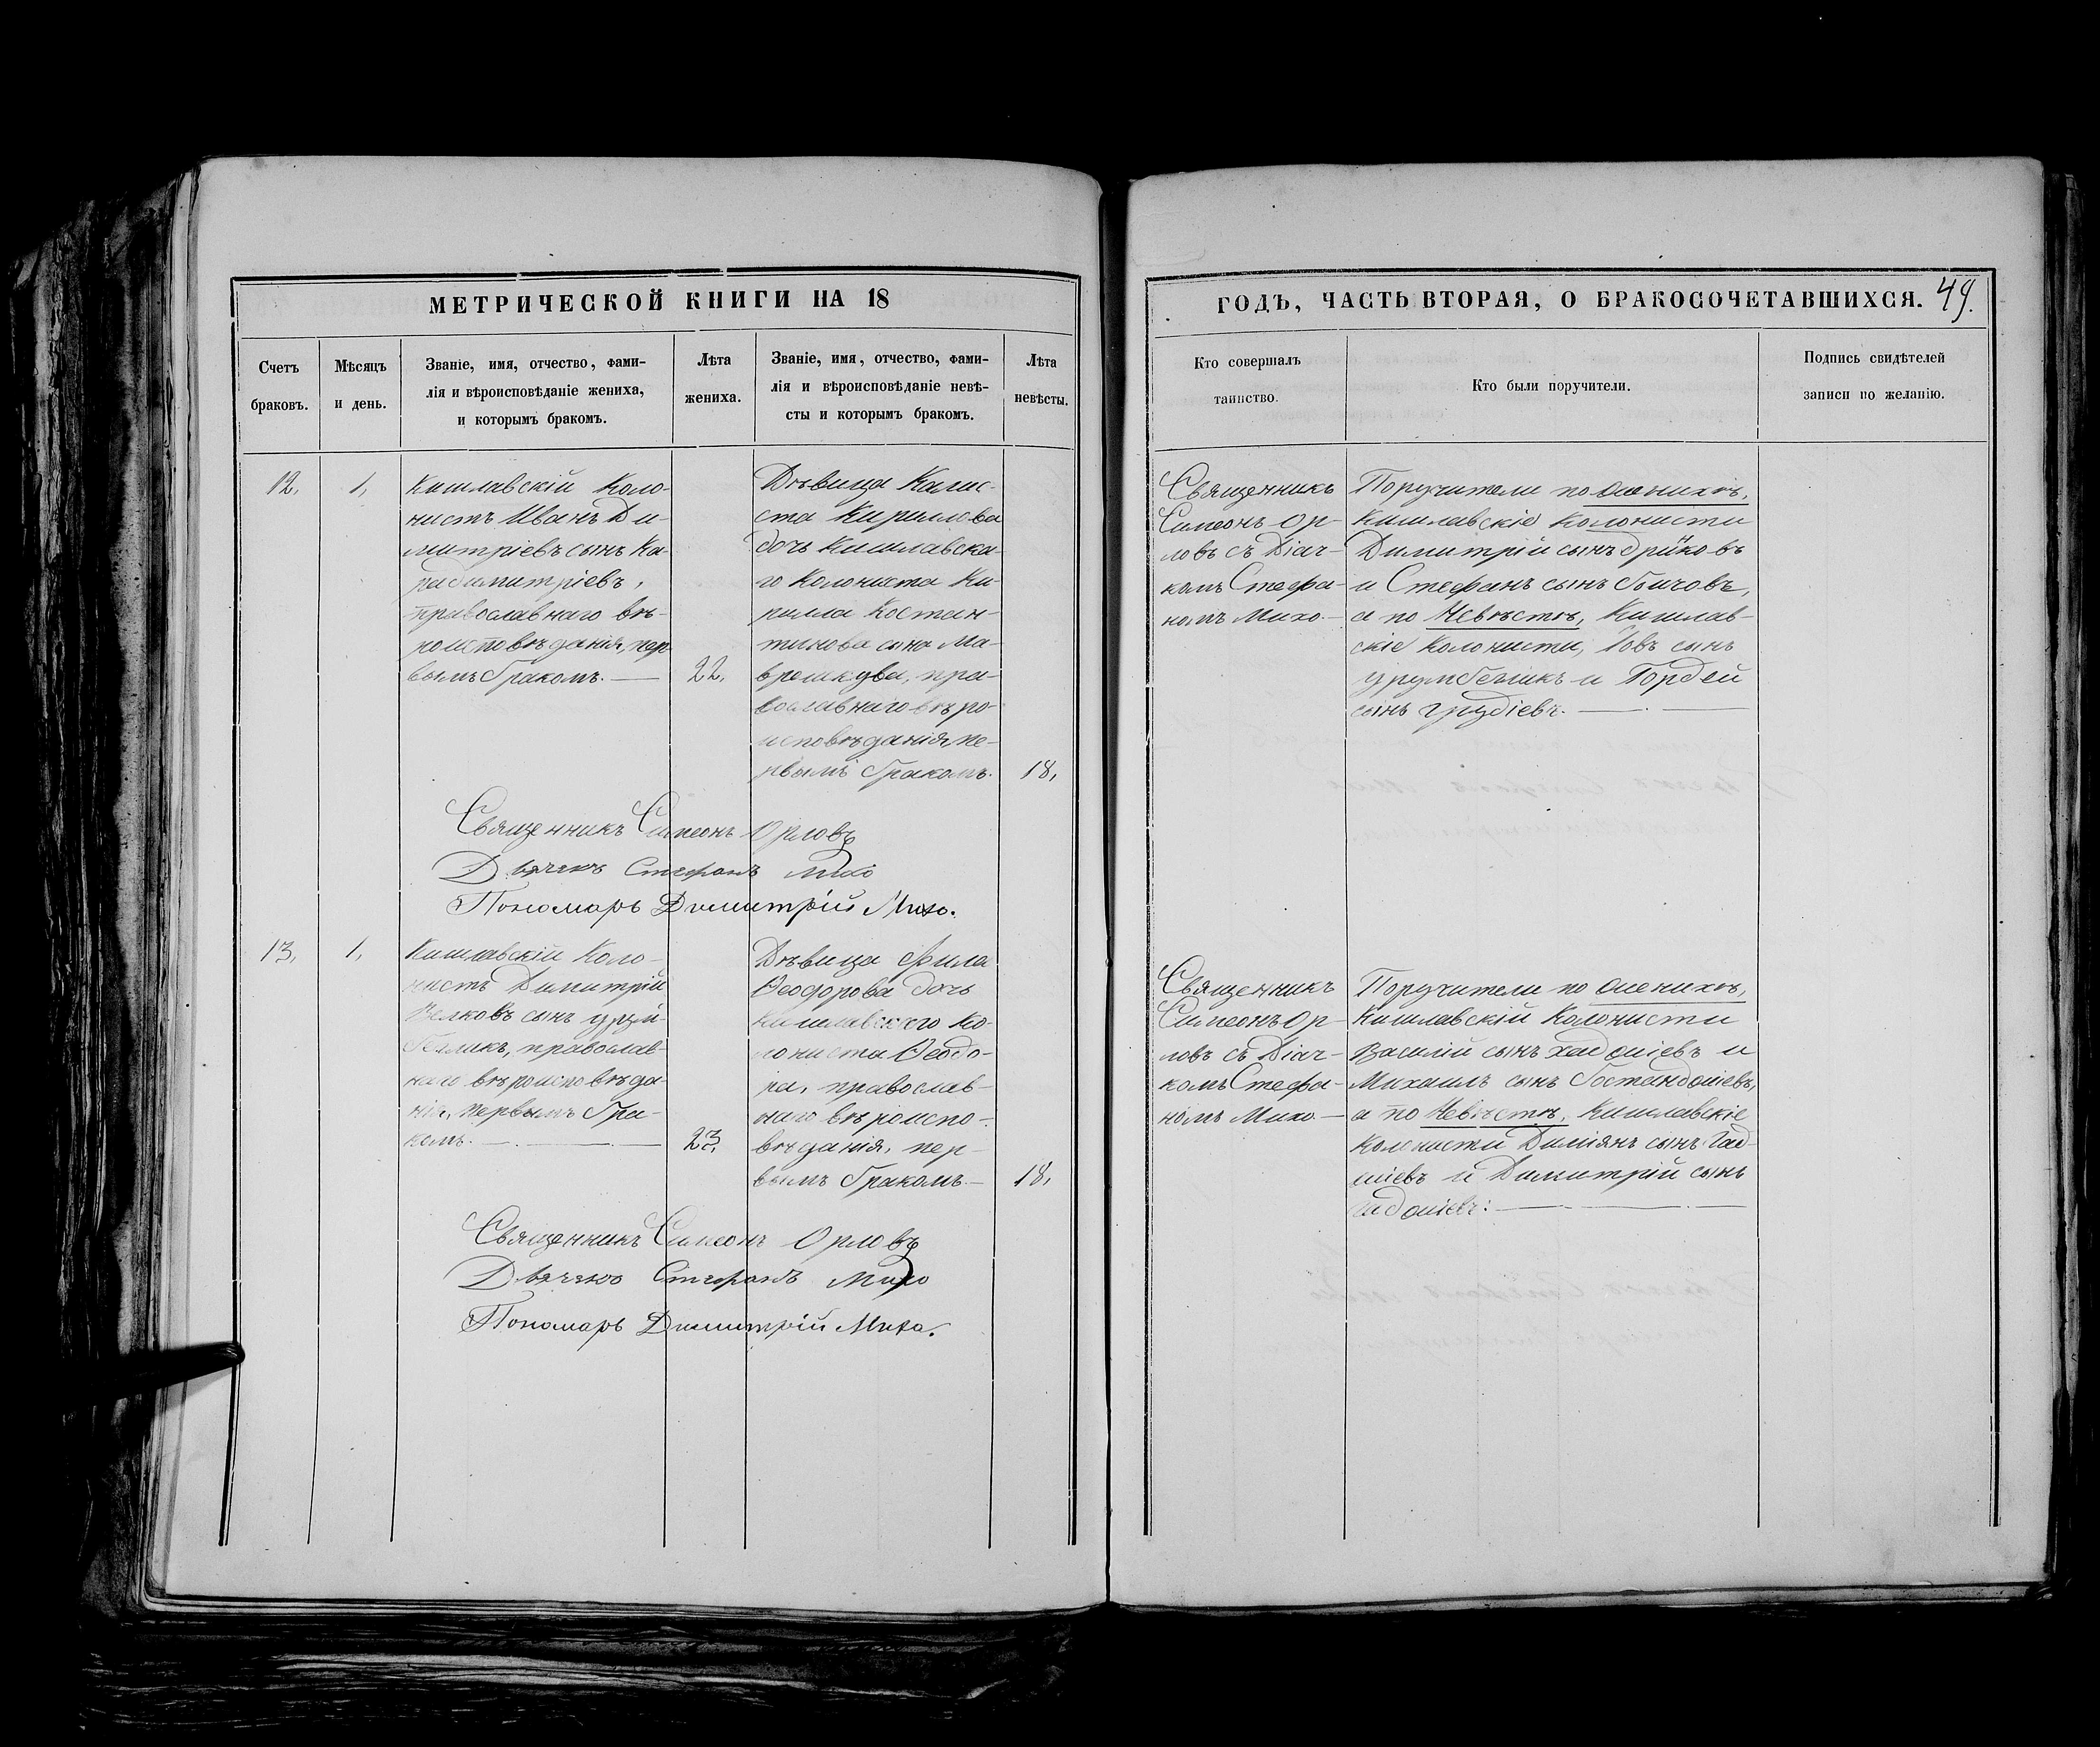 МЕТРИЧЕСКОЙ КНИГИ НА 18
Счетъ браковъ.
Мѣсяцъ и день.
Званіе, имя, отчество, фами-
лія и вѣроисповѣданіе жениха,
и которымъ бракомъ.
Лѣта жениха.
Званіе, имя, отчество, фами-
лія и вѣроисповѣданіе невѣ-
сты и которымъ бракомъ.
Лѣта невѣсты.
12.
1.
Кишлавскій Коло-
нистъ Иванъ Ди-
митріевъ сынъ Ка-
радимитріевъ,
православнаго вѣ-
роисповѣданія, пер
вымъ бракомъ.
22.
Дѣвица Калис-
ста Кирилова
дочь Кишлавска-
го Колониста Ки-
рилла Костан-
тинова сына Ма-
врошкува, пра-
вославнаго вѣро-
исповѣданія пе-
рвымъ бракомъ.
18,
Священникъ Симеонъ Орловъ
Дьячекъ Стефанъ Михо
Пономарь Димитрій Михо.
13,
1,
Кишлавскій Коло-
нистъ Димитрій
Велковъ сынъ Урум-
безликъ, православ-
наго вѣроисповѣда-
нія, первымъ бра-
комъ.
23,
Дѣвица Фила
Ѳеодорова дочь
Кишлавскаго Ко-
лониста Ѳеодо-
ра, православ-
наго вѣроиспо-
вѣданія, пер-
вымъ бракомъ.
18,
Священникъ Симеонъ Орловъ
Дьячекъ Стефанъ Михо
Пономарь Димитрій Михо.
ГОДЪ, ЧАСТЬ ВТОРАЯ, О БРАКОСОЧЕТАВШИХСЯ. 49.
Кто совершалъ
таинство.
Кто были поручители.
Подпись свидѣтелей
записи по желанію.
Священникъ
Симеонъ Ор-
ловъ съ Діач-
комъ Стефа-
номъ Михо.
Поручители по женихѣ,
Кишлавскіе Колонисти
Димитрій сынъ
и Стефанъ сынъ
а по Невѣстѣ, Кишлав-
скіе Колонисти, Іовъ сынъ
Урумбезликъ и Гордей
сынъ Грудіевъ.
Священникъ
Симеонъ Ор-
ловъ съ Діач-
комъ Стефа-
номъ Михо.
Поручители по женихѣ,
Кишлавскій Колонисти
Василій сынъ Хаджіевъ и
Михаилъ сынъ Бостанджіевъ,
а по Невѣстѣ, Кишлавскіе
Колонисти Диміянъ сынъ Гад-
жіевъ и Димитрій сынъ
Гаджіевъ: